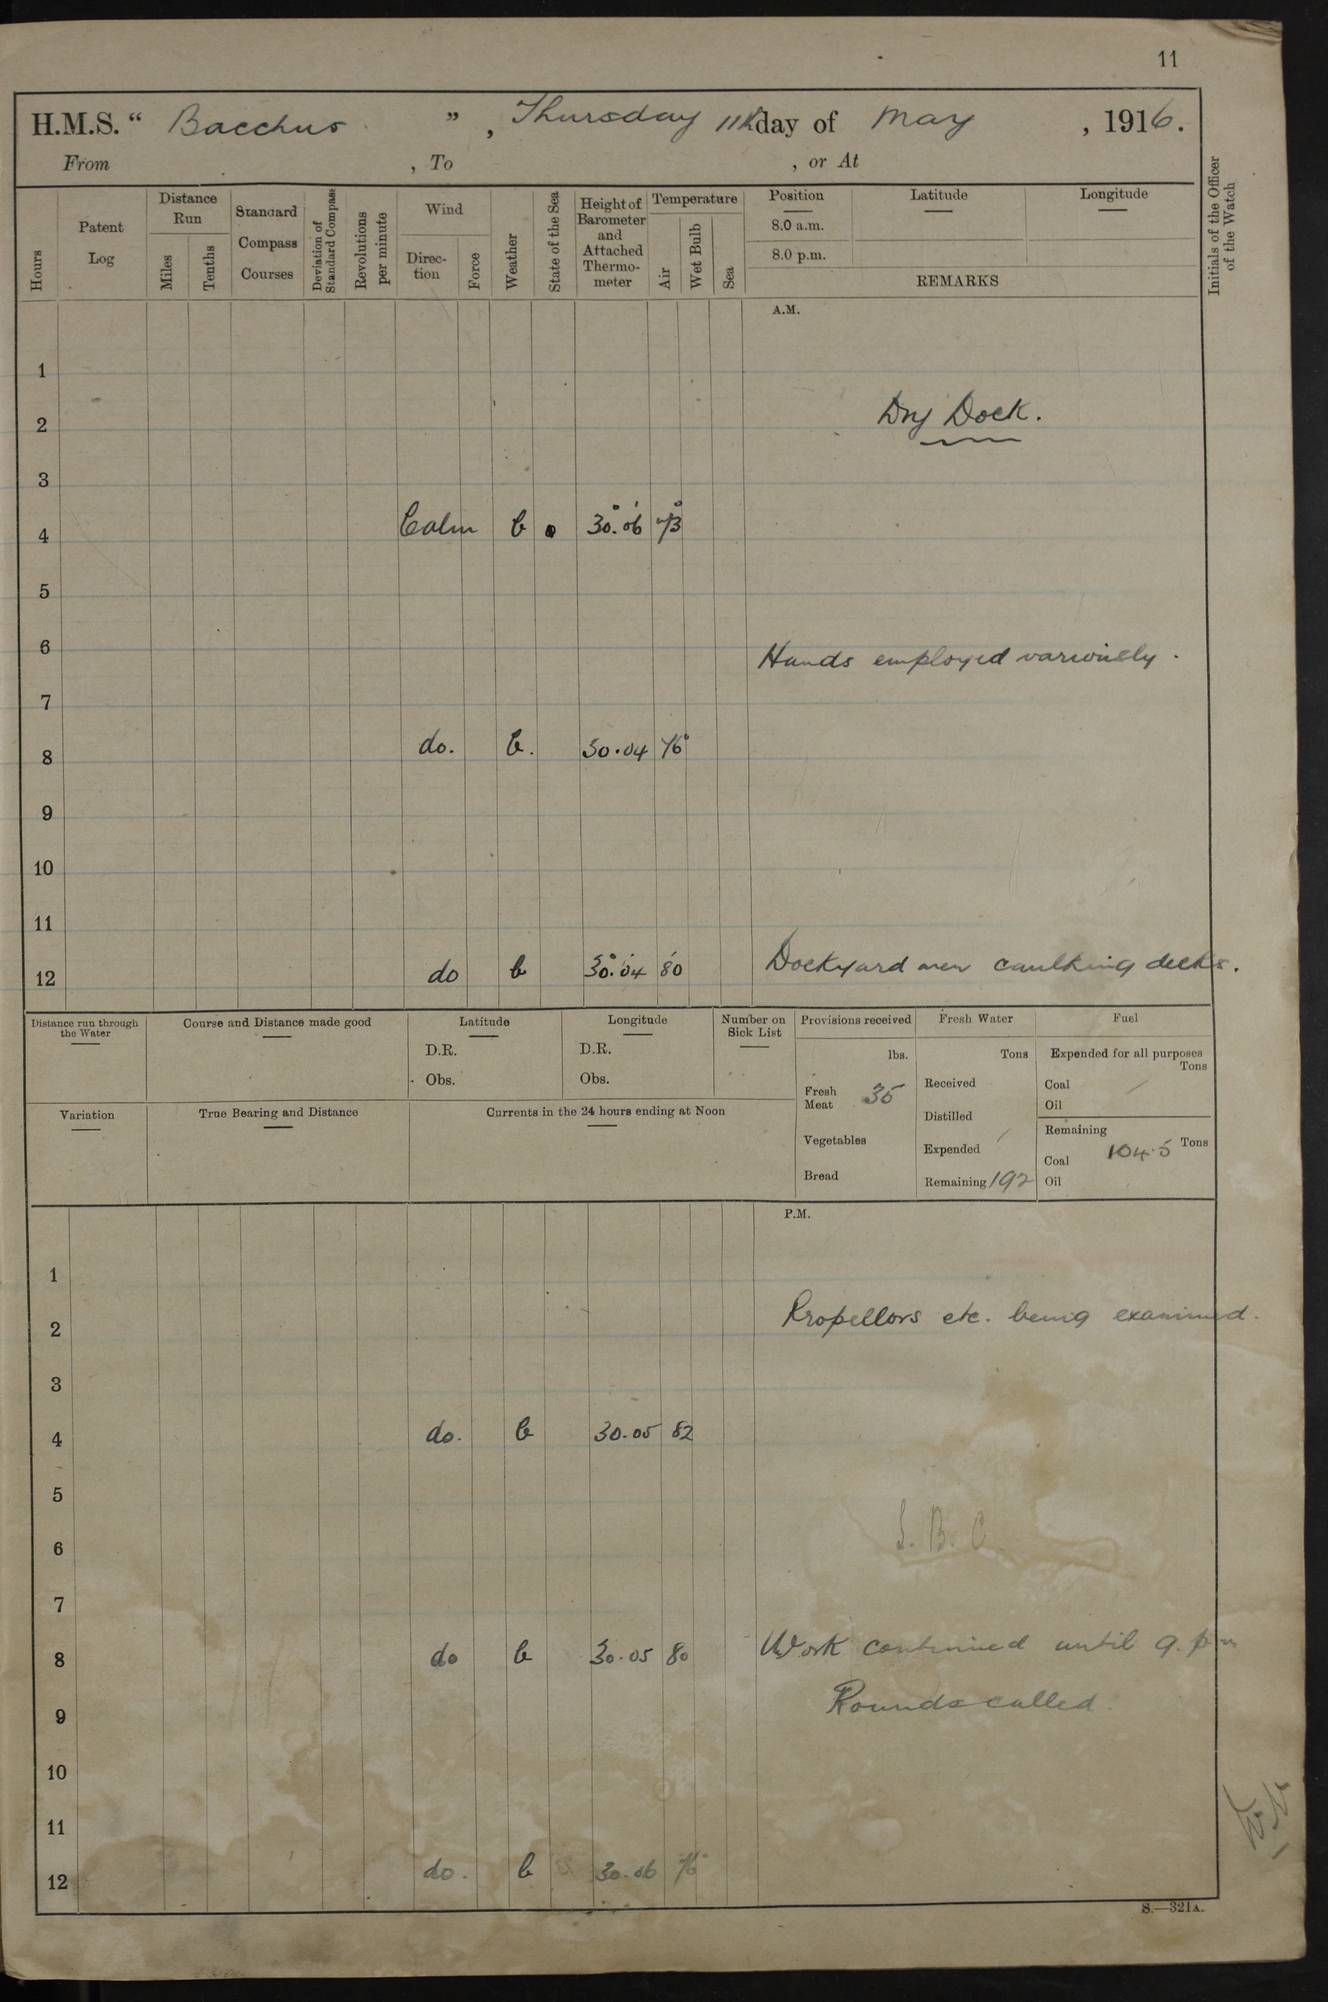 11
H.M.S. “ Bacchus ” , Thursday 11th day of May , 1916.
From , To , or At
Hours
Patent Log
Distance Run
Miles
Tenths
Standard Compass Courses
Deviation of Standard Compass
Revolutions per minute
Wind
Direc-tion
Force
Weather
State of the Sea
Height of Barometer and Attached Thermo-meter
Temperature
Air
Wet Bulb
Sea
Position
Latitude
Longitude
8.0 a.m.
8.0 p.m.
REMARKS
Initials of the Officer of the Watch
A.M.
1
2 Dry Dock.
3
4 Calm b 30.06 73
5
6 Hands employed variously.
7
8 do. b. 30.04 76
9
10
11
12 do b 30.04 80 Dockyard men caulking decks.
Distance run through the Water
Course and Distance made good
Latitude
D.R.
Obs.
Longitude
D.R.
Obs.
Number on Sick List
Provisions received
lbs.
Fresh Meat 35
Vegetables
Bread
Fresh Water
Tons
Received
Distilled
Expended
Remaining 192
Fuel
Expended for all purposes
Tons
Coal
Oil
Remaining
Coal 104.5 Tons
Oil
Variation
True Bearing and Distance
Currents in the 24 hours ending at Noon
P.M.
1
2 Propellors etc. being examined.
3
4 do. b 30.05 82
5
6 S. B. C.
7
8 do b 30.05 80 Work continued until 9. pm
9 Rounds called.
10
11
12 do. b 30.06 76
S.—321A.